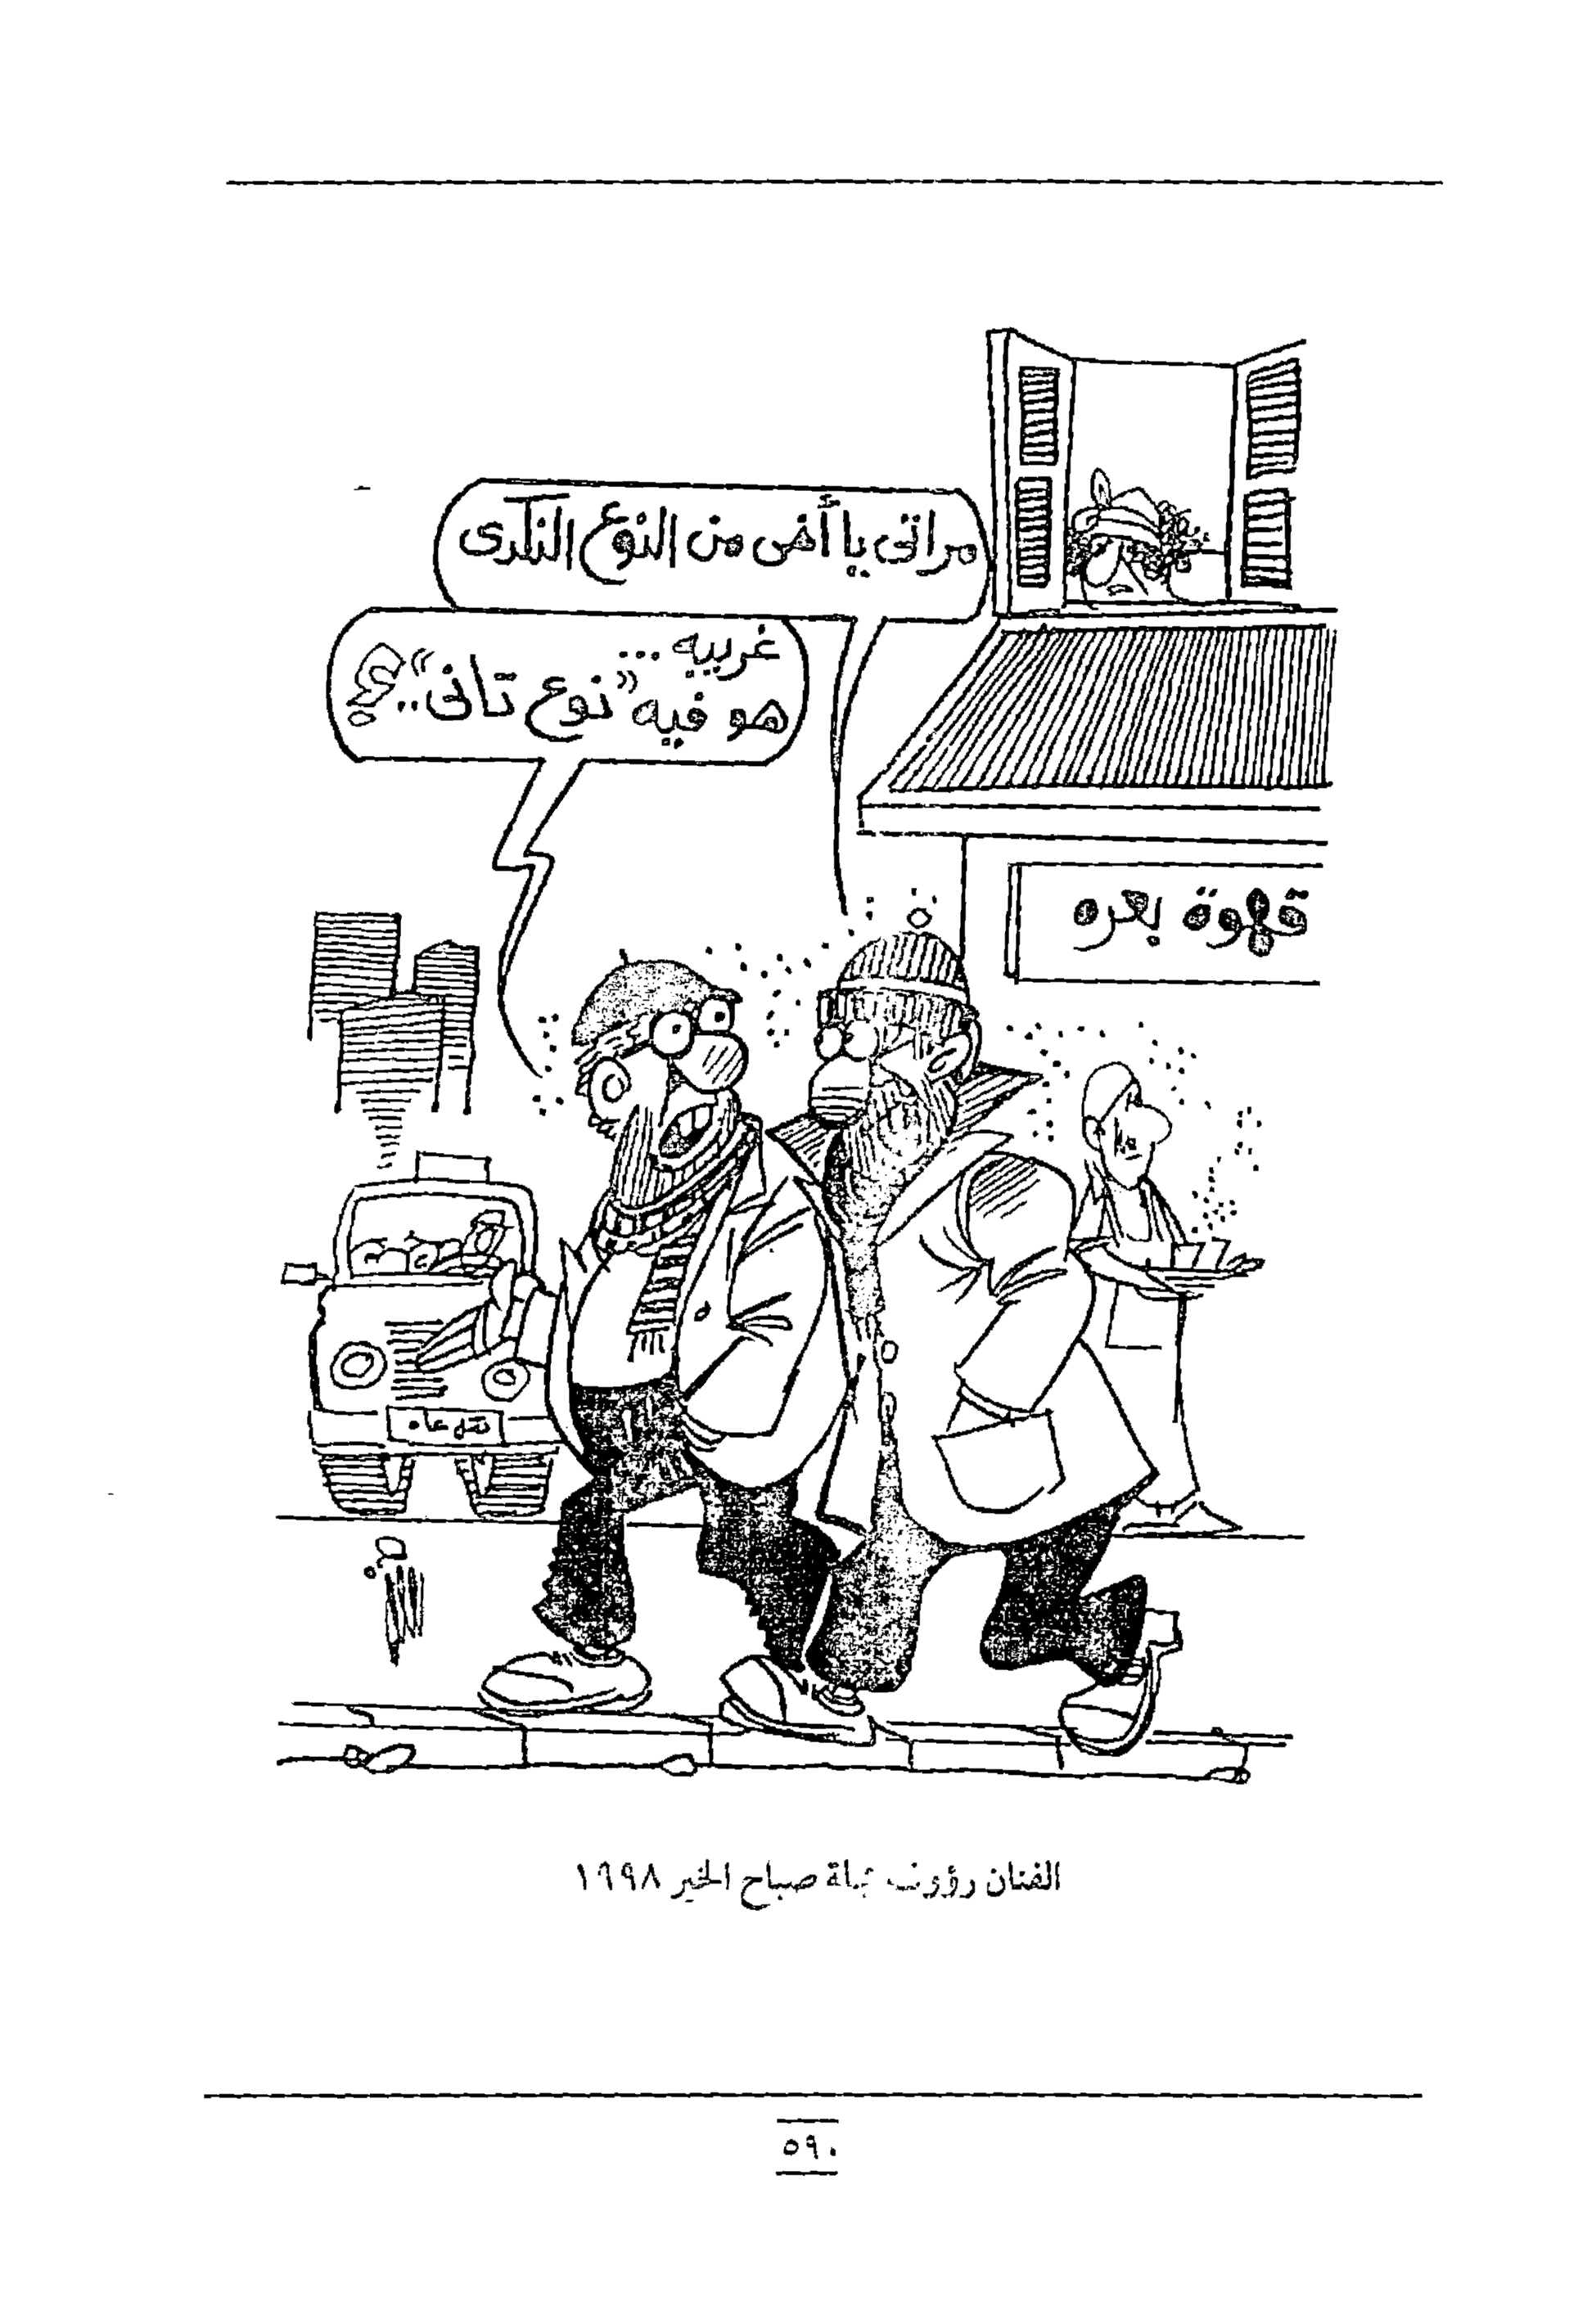 مراتى يا أخى من النوع النكدى
غريبه ...
هو فيه "نوع تانى"..؟
قهوة بعره
نقل عام
الفنان رؤوف مجلة صباح الخير ١٩٩٨
٥٩٠